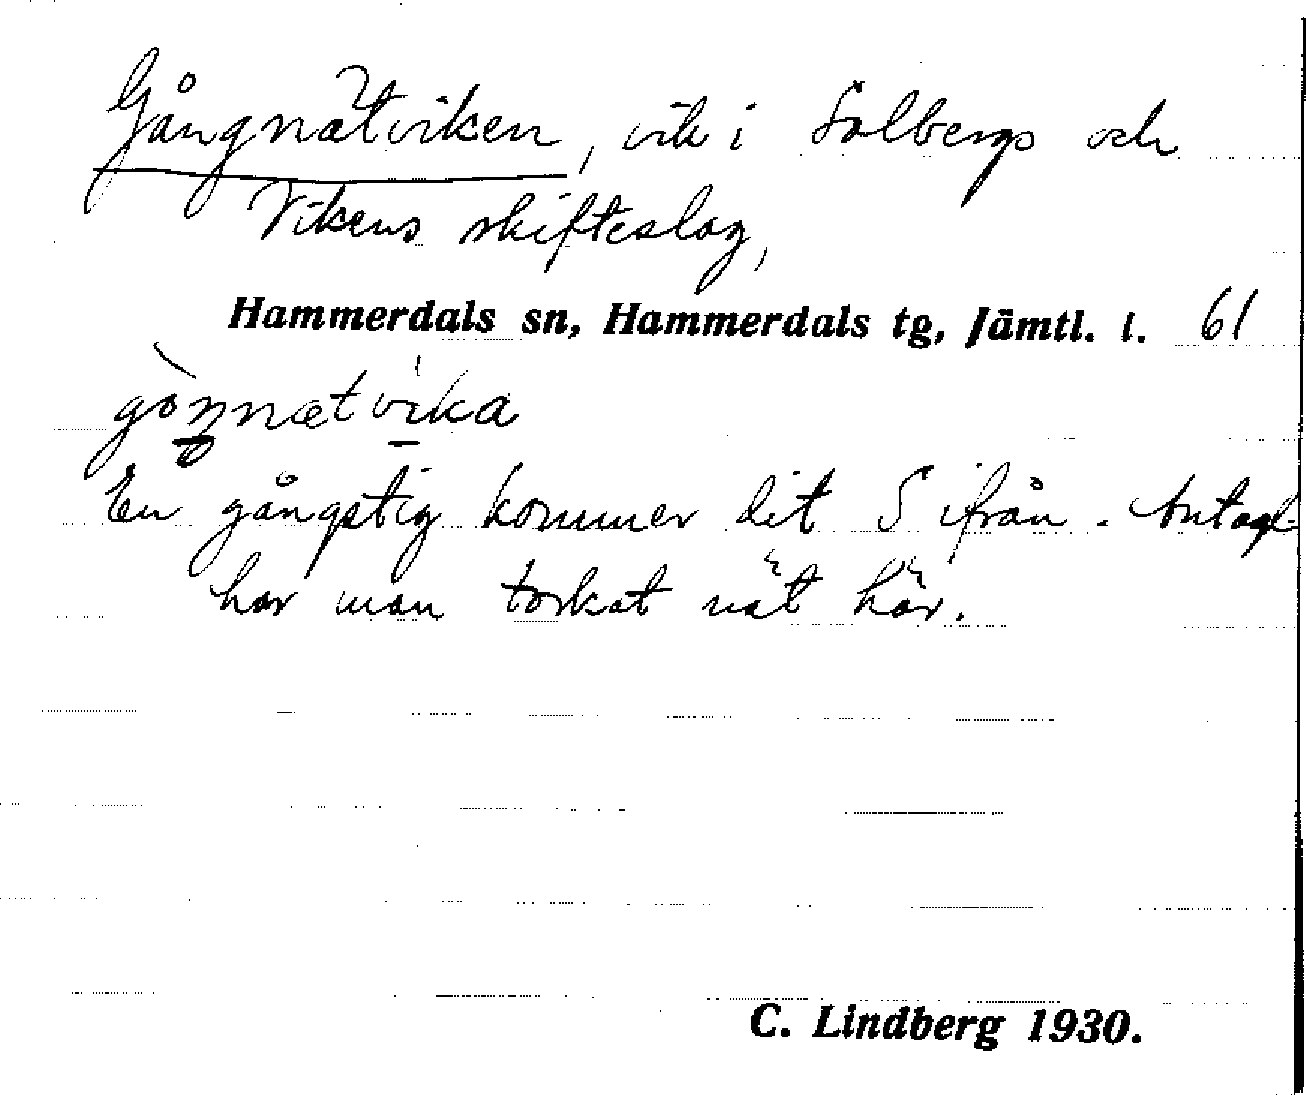 Gångnätviken, vik i Solbergs och
Vikens skifteslag,
Hammerdals sn, Hammerdals tg, Jämtl. l. 61
gòŋnætvika
En gångstig kommer dit S ifrån. Antagl.
har man torkat nät här.
C. Lindberg 1930.